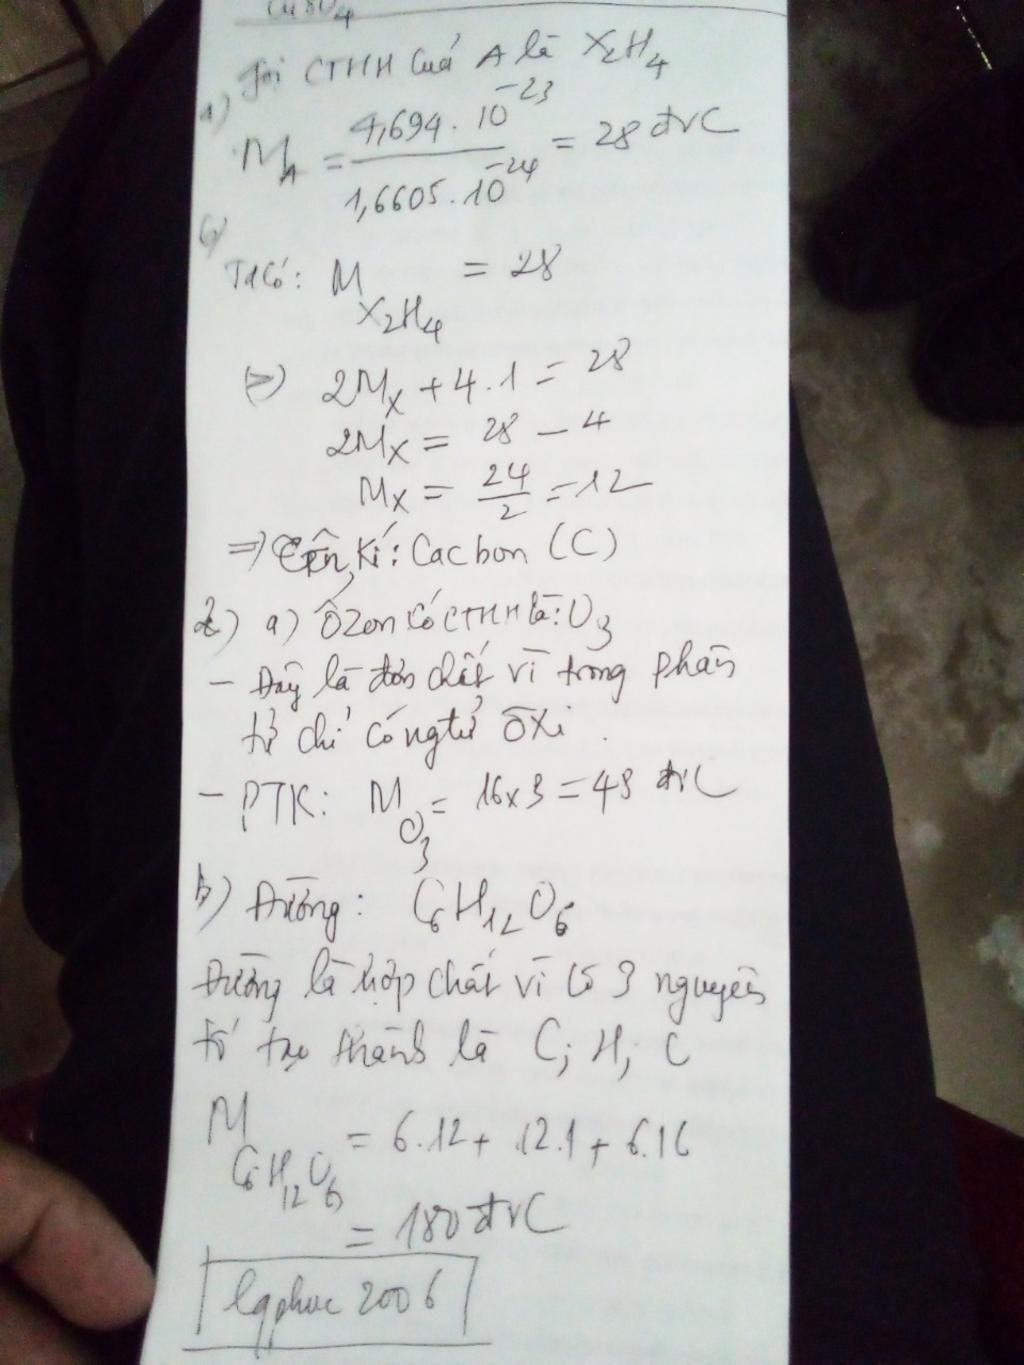 CuSO4
Gọi CTHH của A là X2H4
a)
M_A = 4,694.10^-23 / 1,6605.10^-24 = 28 đvC
b)
Ta có: M_X2H4 = 28
(=>) 2M_X + 4.1 = 28
2M_X = 28 - 4
M_X = 24/2 = 12
=> Tên, Kí: Cacbon (C)
2) a) Ôzon có CTHH là: O3
- Đây là đơn chất vì trong phân
tử chỉ có ngtử ôxi.
- PTK: M_O3 = 16x3 = 48 đvC
b) Đường: C6H12O6
Đường là hợp chất vì có 3 nguyên
tố tạo thành là C; H; C
M_C6H12O6 = 6.12 + 12.1 + 6.16
= 180 đvC
lqphuc 2006